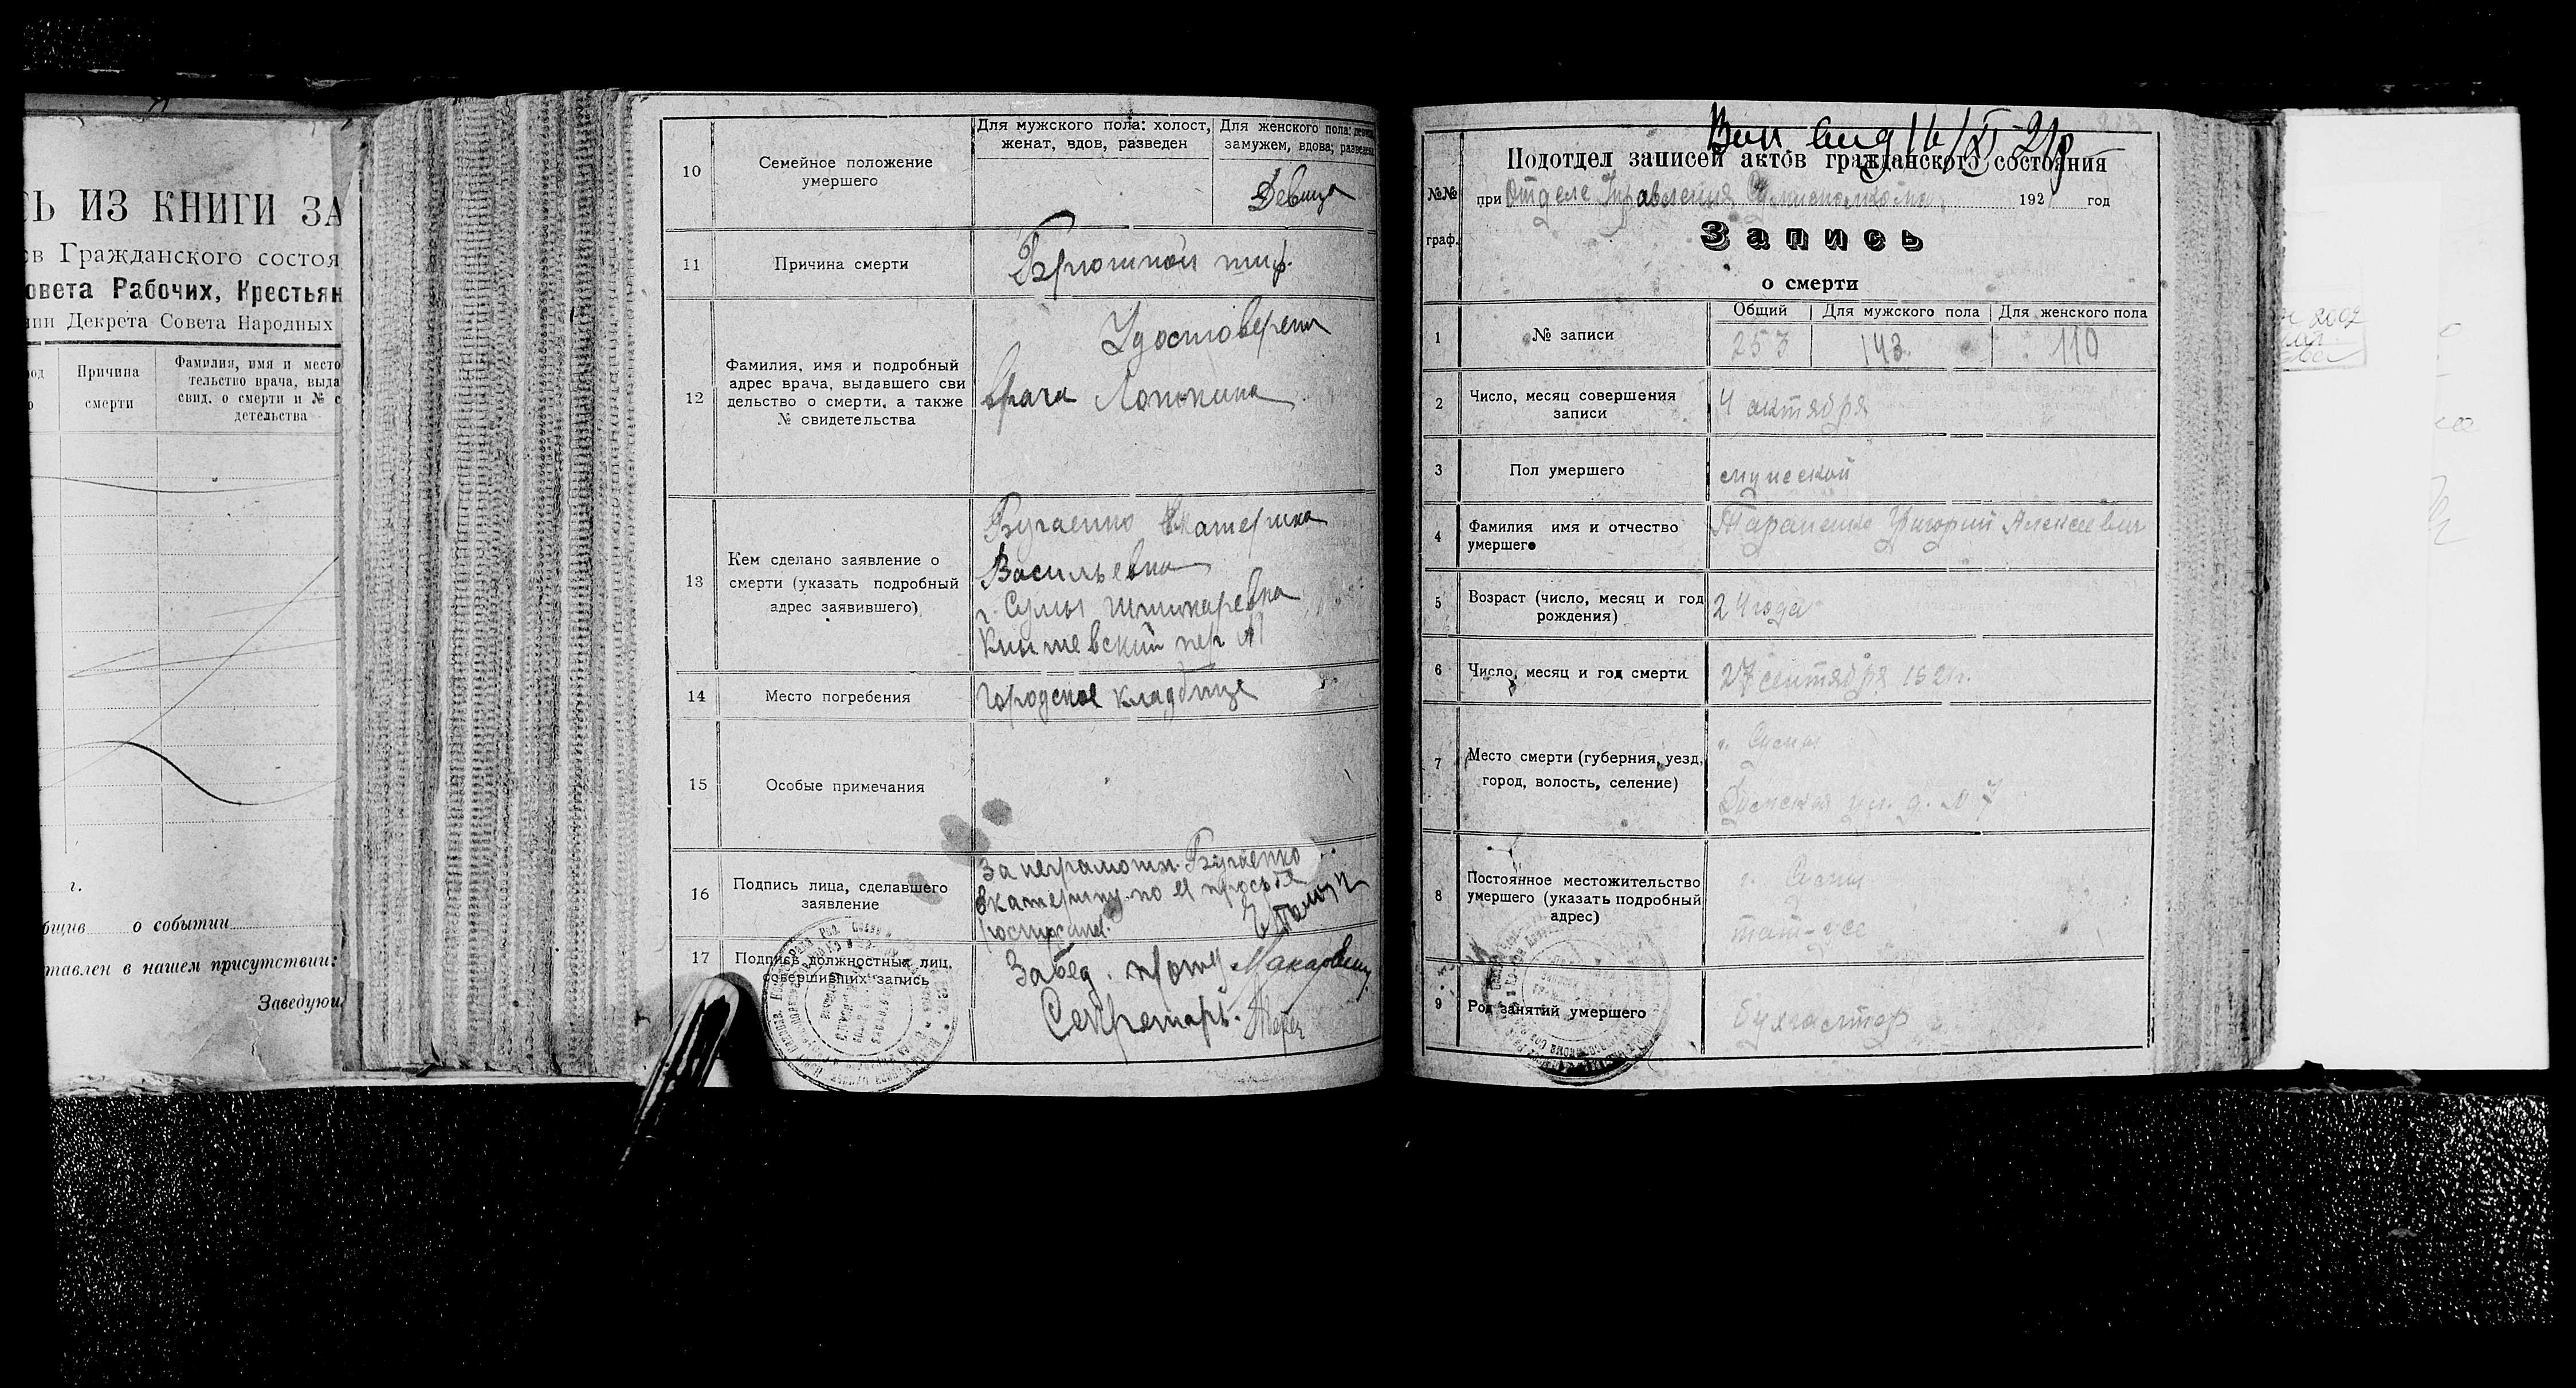 Ь ИЗ КНИГИ ЗА
в Гражданского состоя
овета Рабочих, Крестьян
нии Декрета Совета Народных
од
Причина
смерти
Фамилия, имя и место
тельство врача, выда
свид. о смерти и № с
детельства
г.
бщив о событии
тавлен в нашем присутствии:
Заведующ
10
Семейное положение
умершего
Для мужского пола: холост,
женат, вдов, разведен
Для женского пола: девица
замужем, вдова, разведена
Девица
11
Причина смерти
Брюшной тиф.
12
Фамилия, имя и подробный
адрес врача, выдавшего сви
дельство о смерти, а также
№ свидетельства
Удостоверени
врача
13
Кем сделано заявление о
смерти (указать подробный
адрес заявившего)
Бугаенко Екатерина
Васильевна
г. Сумы
пер
14
Место погребения
городское кладбище
15
Особые примечания
16
Подпись лица, сделавшего
заявление
За неграмотн. Бугаенко
Екатерину по её просьбе
расписался
17
Подпись должностных лиц,
совершивших запись
Завед. п/отд
Секретарь.
№№
граф.
Подотдел записей актов гражданского состояния
при Отделе Управления 192 год
Запись
о смерти
1
№ записи
Общий
Для мужского пола
Для женского пола
253
143
110
2
Число, месяц совершения
записи
4 октября
3
Пол умершего
мужской
4
Фамилия имя и отчество
умершего
Тараненко Григорий Алексеевич
5
Возраст (число, месяц и год
рождения)
24 года
6
Число, месяц и год смерти
27 сентября 1921г.
7
Место смерти (губерния, уезд,
город, волость, селение)
г. Сумы
ул. д. № 7
8
Постоянное местожительство
умершего (указать подробный
адрес)
г. Сумы
там-же
9
Род занятий умершего
бухгалтер